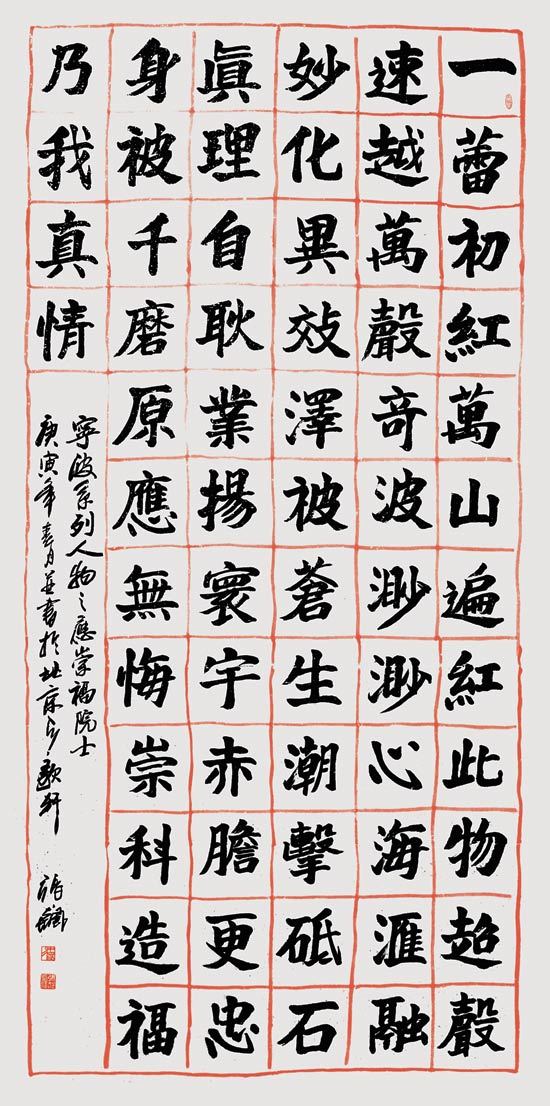 一蕾初紅萬山遍紅此物超聲
速越萬聲奇波渺渺心海滙融
妙化異效澤被蒼生潮擊砥石
眞理自耿業揚寰宇赤膽更忠
身被千磨原應無悔崇科造福
乃我真情
寧波系列人物之應崇福院士
庚寅年春月並書於北京軒